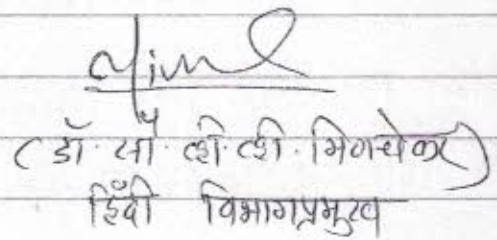 (डॉ. सौ. व्ही. व्ही. मिणचेकर)
हिंदी विभागप्रमुख